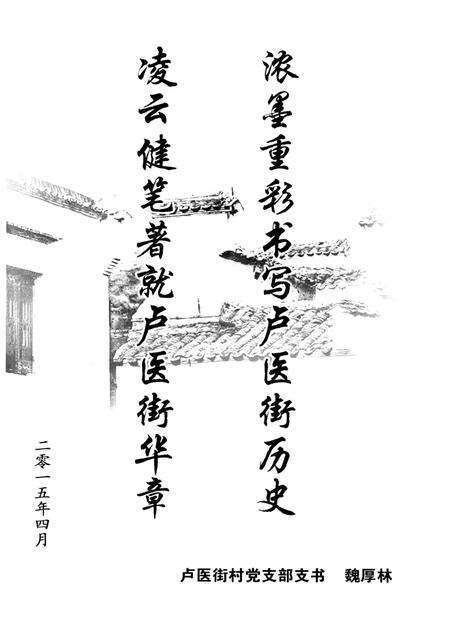 浓墨重彩书写卢医街历史
凌云健笔著就卢医街华章
二零一五年四月
卢医街村党支部支书 魏厚林